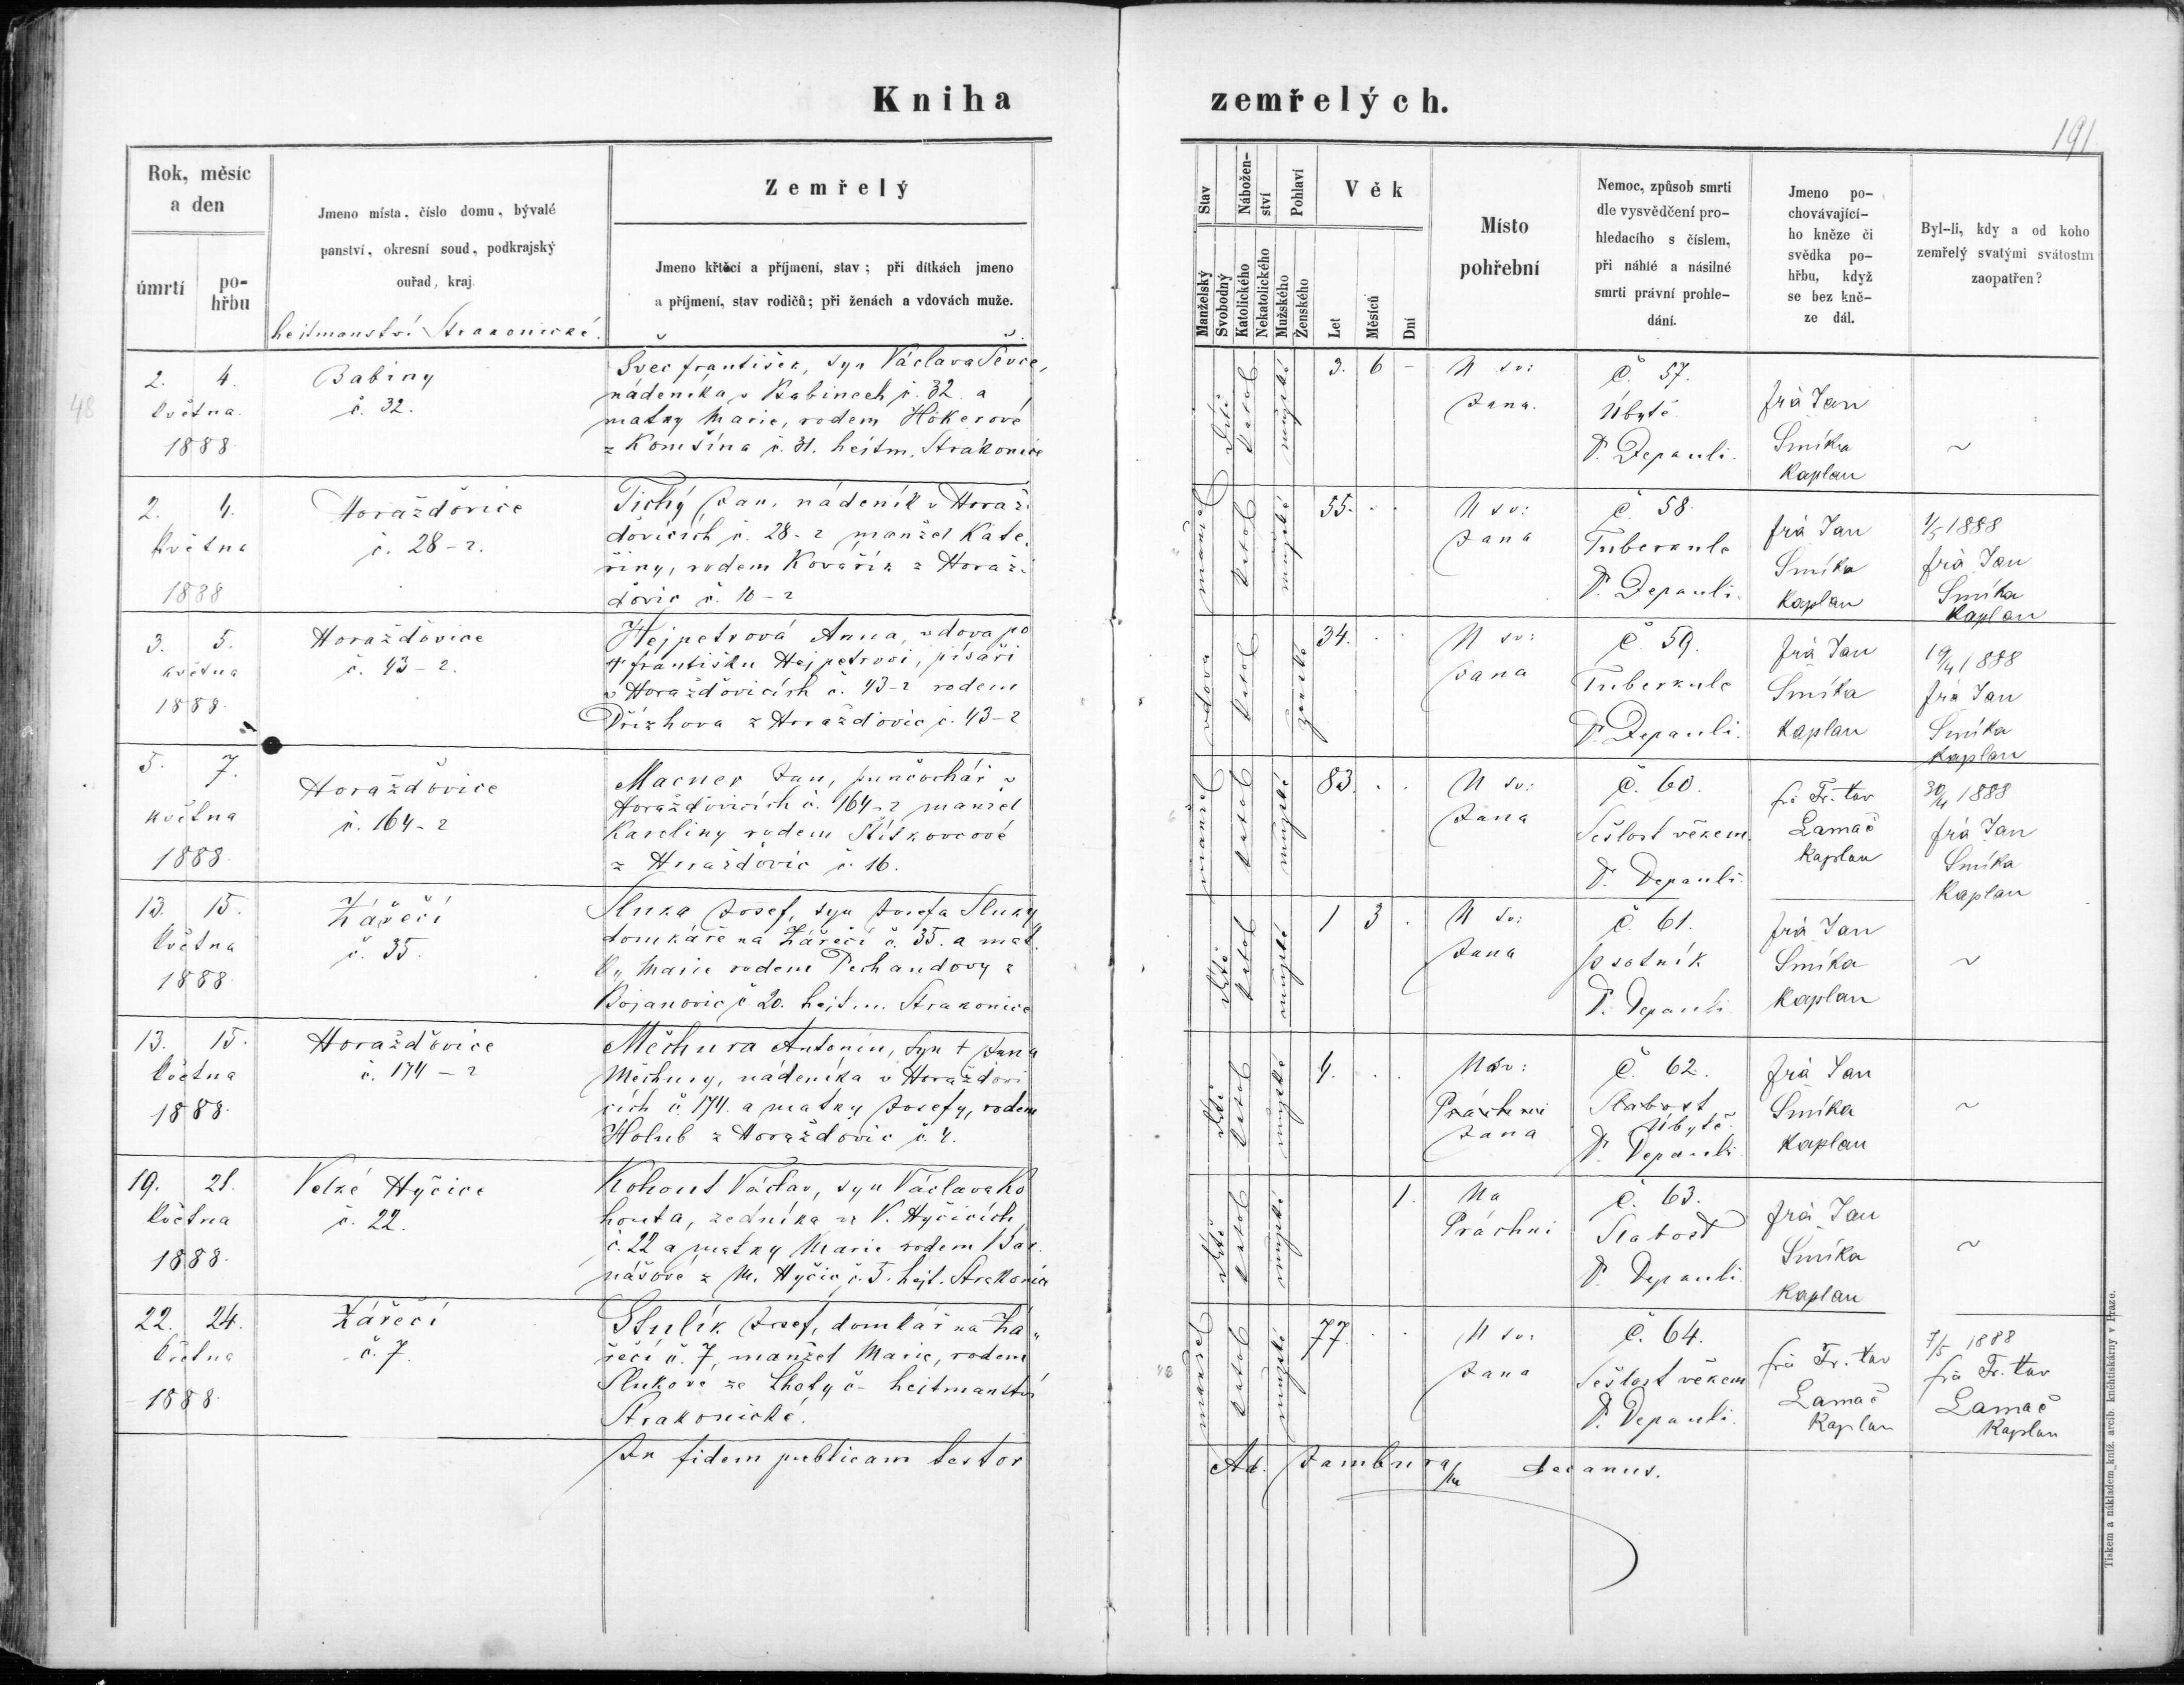 Kniha zemřelých.
191
Rok, měsíc
a den
úmrtí
po-
hřbu
Jmeno místa, číslo domu, bývalé
panství, okresní soud, podkrajský
ouřad, kraj.
heitmanství Strakonické.
Zemřelý
Jmeno křtěcí a příjmení, stav; při dítkách jmeno
a příjmení, stav rodičů; při ženách a vdovách muže.
Stav
Manželský
Svobodný
Nábožen-
ství
Katolického
Nekatolického
Pohlaví
Mužského
Ženského
Věk
Let
Měsíců
Dní
Místo
pohřební
Nemoc, způsob smrti
dle vysvědčení pro-
hledacího s číslem,
při náhlé a násilné
smrti právní prohle-
dání.
Jmeno po-
chovávající-
ho kněze či
svědka po-
hřbu, když
se bez kně-
ze dál.
Byl-li, kdy a od koho
zemřelý svatými svátostmi
zaopatřen?
48
2. 4.
května
1888.
Babiny
č. 32.
Švec František, syn Václava Ševce,
nádeníka v Babinech č. 32. a
matky Marie, rodem Hökerové
z Komšína č. 31. heitm. Strakonice
dítě
katol
mužské
3. 6 -
U sv:
Jana.
Č. 57.
Úbytě
D. Depauli.
frà Jan
Smíka
Kaplan
~
2. 4.
května
1888
Horažďovice
č. 28-2.
Tichý Jan, nádeník v Horaž-
ďovicích č. 28-2 manžel Kate-
řiny, rodem Kovářík z Horaž-
ďovic č. 10-2
manžel
katol
mužské
55.
U sv:
Jana
č. 58.
Tuberkule
D. Depauli.
frà Jan
Smíka
Kaplan
1/5 1888
frà Jan
Smíka
Kaplan
3. 5.
května
1888.
Horažďovice
č. 43-2.
Hejpetrová Anna, vdova po
† Františku Hejpetrovi, písaři
v Horažďovicích č. 43-2 rodem
z Horažďovic č. 43-2
vdova
katol
ženské
34.
U sv:
Jana
č. 59.
Tuberkule
D. Depauli.
frà Jan
Smíka
Kaplan
19/4 1888
frà Jan
Smíka
Kaplan
5. 7.
května
1888.
Horažďovice
č. 164-2
Macner Jan, punčochář v
Horažďovicích č. 164-2 manžel
Karoliny rodem Štítkovcové
z Horažďovic č. 16.
manžel
katol
mužské
83.
U sv:
Jana
č. 60.
Sešlost věkem.
D. Depauli.
frà Fr. Xav
Lamač
Kaplan
30/4 1888
frà Jan
Smíka
Kaplan
13. 15.
května
1888.
Zářečí
č. 35.
Sluka Josef, syn Josefa Sluky
domkáře na Zářečí č. 35. a mat-
ky Marie rodem Pechandovy z
Bojanovic č. 20. hejtm. Strakonice
dítě
katol
mužské
1 3 .
U sv:
Jana
č. 61.
psotník
D. Depauli
frà Jan
Smíka
Kaplan
~
13. 15.
května
1888.
Horažďovice
č. 174-2
Měchura Antonín, syn † Jana
Měchury, nádeníka v Horažďovi
cích č. 174. a matky Josefy, rodem
Holub z Horažďovic č. 4.
dítě
katol
mužské
4.
U sv:
Práchni
Jana
Č. 62.
Slabost
Úbytě
D. Depauli
frà Jan
Smíka
Kaplan
~
19. 21.
května
1888.
Velké Hyčice
č. 22.
Kohout Václav, syn Václava Ko
houta, zedníka ve V. Hyčicích
č. 22 a matky Marie rodem Bar-
nášové z M. Hyčic č. 5. hejt. Strakonice
dítě
katol
mužské
1.
Na
Práchni
č. 63.
Slabost
D. Depauli.
frà Jan
Smíka
Kaplan
~
22. 24.
května
1888.
Zářečí
č. 7
Stulík Josef, domkář na Zá-
řečí č. 7, manžel Marie, rodem
Slukové ze Lhoty č- heitmanství
Strakonické.
manžel
katol
mužské
77.
U sv:
Jana
č. 64.
Sešlost věkem
D. Depauli.
frà Fr. Xav
Lamač
Kaplan
7/5 1888
frà Fr. Xav
Lamač
Kaplan
In fidem publicam testor
Ad. Jambura decanus.
Tiskem a nákladem kníž. arcib. kněhtiskárny v Praze.